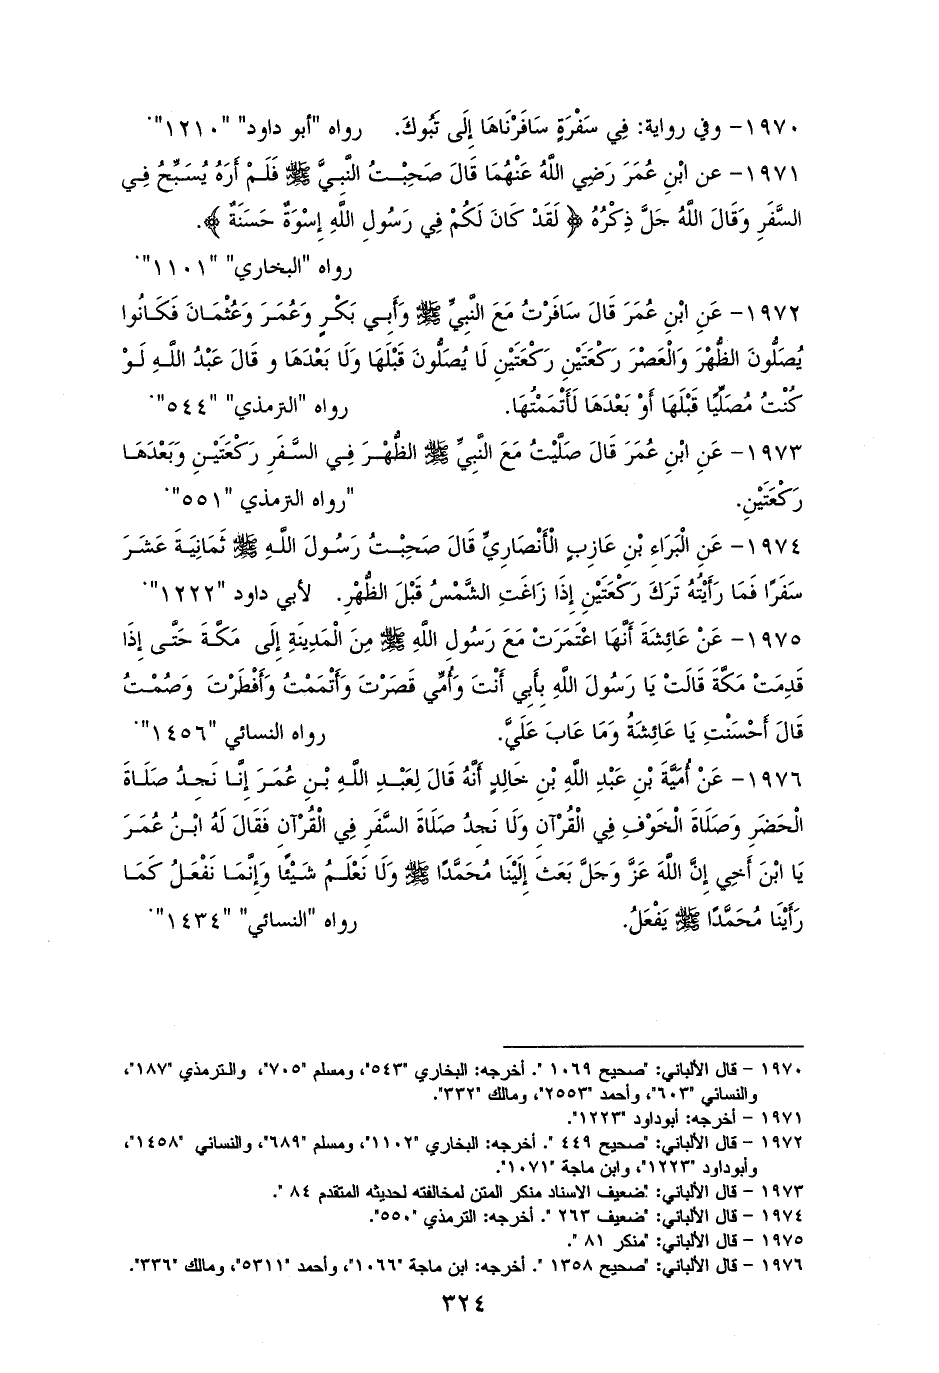 ١٩٧٠- وفي رواية: فِي سَفْرَةٍ سَافَرْنَاهَا إِلَى تَبُوكَ. رواه "أبو داود" "١٢١٠".
١٩٧١- عن ابْنِ عُمَرَ رَضِي اللَّهُ عَنْهُمَا قَالَ صَحِبْتُ النَّبِيَّ ﷺ فَلَمْ أَرَهُ يُسَبِّحُ فِي
السَّفَرِ وَقَالَ اللَّهُ جَلَّ ذِكْرُهُ ﴿ لَقَدْ كَانَ لَكُمْ فِي رَسُولِ اللَّهِ إِسْوَةٌ حَسَنَةٌ ﴾.
رواه "البخاري" "١١٠١".
١٩٧٢- عَنِ ابْنِ عُمَرَ قَالَ سَافَرْتُ مَعَ النَّبِيِّ ﷺ وَأَبِي بَكْرٍ وَعُمَرَ وَعُثْمَانَ فَكَانُوا
يُصَلُّونَ الظُّهْرَ وَالْعَصْرَ رَكْعَتَيْنِ رَكْعَتَيْنِ لَا يُصَلُّونَ قَبْلَهَا وَلَا بَعْدَهَا و قَالَ عَبْدُ اللَّهِ لَوْ
كُنْتُ مُصَلِّيًا قَبْلَهَا أَوْ بَعْدَهَا لَأَتْمَمْتُهَا. رواه "الترمذي" "٥٤٤".
١٩٧٣- عَنِ ابْنِ عُمَرَ قَالَ صَلَّيْتُ مَعَ النَّبِيِّ ﷺ الظُّهْرَ فِي السَّفَرِ رَكْعَتَيْنِ وَبَعْدَهَا
رَكْعَتَيْنِ. "رواه الترمذي "٥٥١".
١٩٧٤- عَنِ الْبَرَاءِ بْنِ عَازِبٍ الْأَنْصَارِيِّ قَالَ صَحِبْتُ رَسُولَ اللَّهِ ﷺ ثَمَانِيَةَ عَشَرَ
سَفَرًا فَمَا رَأَيْتُهُ تَرَكَ رَكْعَتَيْنِ إِذَا زَاغَتِ الشَّمْسُ قَبْلَ الظُّهْرِ. لأبي داود "١٢٢٢".
١٩٧٥- عَنْ عَائِشَةَ أَنَّهَا اعْتَمَرَتْ مَعَ رَسُولِ اللَّهِ ﷺ مِنَ الْمَدِينَةِ إِلَى مَكَّةَ حَتَّى إِذَا
قَدِمَتْ مَكَّةَ قَالَتْ يَا رَسُولَ اللَّهِ بِأَبِي أَنْتَ وَأُمِّي قَصَرْتَ وَأَتْمَمْتُ وَأَفْطَرْتَ وَصُمْتُ
قَالَ أَحْسَنْتِ يَا عَائِشَةُ وَمَا عَابَ عَلَيَّ. رواه النسائي "١٤٥٦".
١٩٧٦- عَنْ أُمَيَّةَ بْنِ عَبْدِ اللَّهِ بْنِ خَالِدٍ أَنَّهُ قَالَ لِعَبْدِ اللَّهِ بْنِ عُمَرَ إِنَّا نَجِدُ صَلَاةَ
الْحَضَرِ وَصَلَاةَ الْخَوْفِ فِي الْقُرْآنِ وَلَا نَجِدُ صَلَاةَ السَّفَرِ فِي الْقُرْآنِ فَقَالَ لَهُ ابْنُ عُمَرَ
يَا ابْنَ أَخِي إِنَّ اللَّهَ عَزَّ وَجَلَّ بَعَثَ إِلَيْنَا مُحَمَّدًا ﷺ وَلَا نَعْلَمُ شَيْئًا وَإِنَّمَا نَفْعَلُ كَمَا
رَأَيْنَا مُحَمَّدًا ﷺ يَفْعَلُ. رواه "النسائي" "١٤٣٤".
١٩٧٠ - قال الألباني: "صحيح ١٠٦٩ ". أخرجه: البخاري "٥٤٣"، ومسلم "٧٠٥"، والترمذي "١٨٧"،
والنسائي "٦٠٣"، وأحمد "٢٥٥٣"، ومالك "٣٣٢".
١٩٧١ - أخرجه: أبوداود "١٢٢٣".
١٩٧٢ - قال الألباني: "صحيح ٤٤٩ ". أخرجه: البخاري "١١٠٢"، ومسلم "٦٨٩"، والنسائي "١٤٥٨"،
وأبوداود "١٢٢٣"، وابن ماجة "١٠٧١".
١٩٧٣ - قال الألباني: "ضعيف الاسناد منكر المتن لمخالفته لحديثه المتقدم ٨٤ ".
١٩٧٤ - قال الألباني: "ضعيف ٢٦٣ ". أخرجه: الترمذي "٥٥٠".
١٩٧٥ - قال الألباني: "منكر ٨١ ".
١٩٧٦ - قال الألباني: "صحيح ١٣٥٨ ". أخرجه: ابن ماجة "١٠٦٦"، وأحمد "٥٣١١"، ومالك "٣٣٦".
٣٢٤